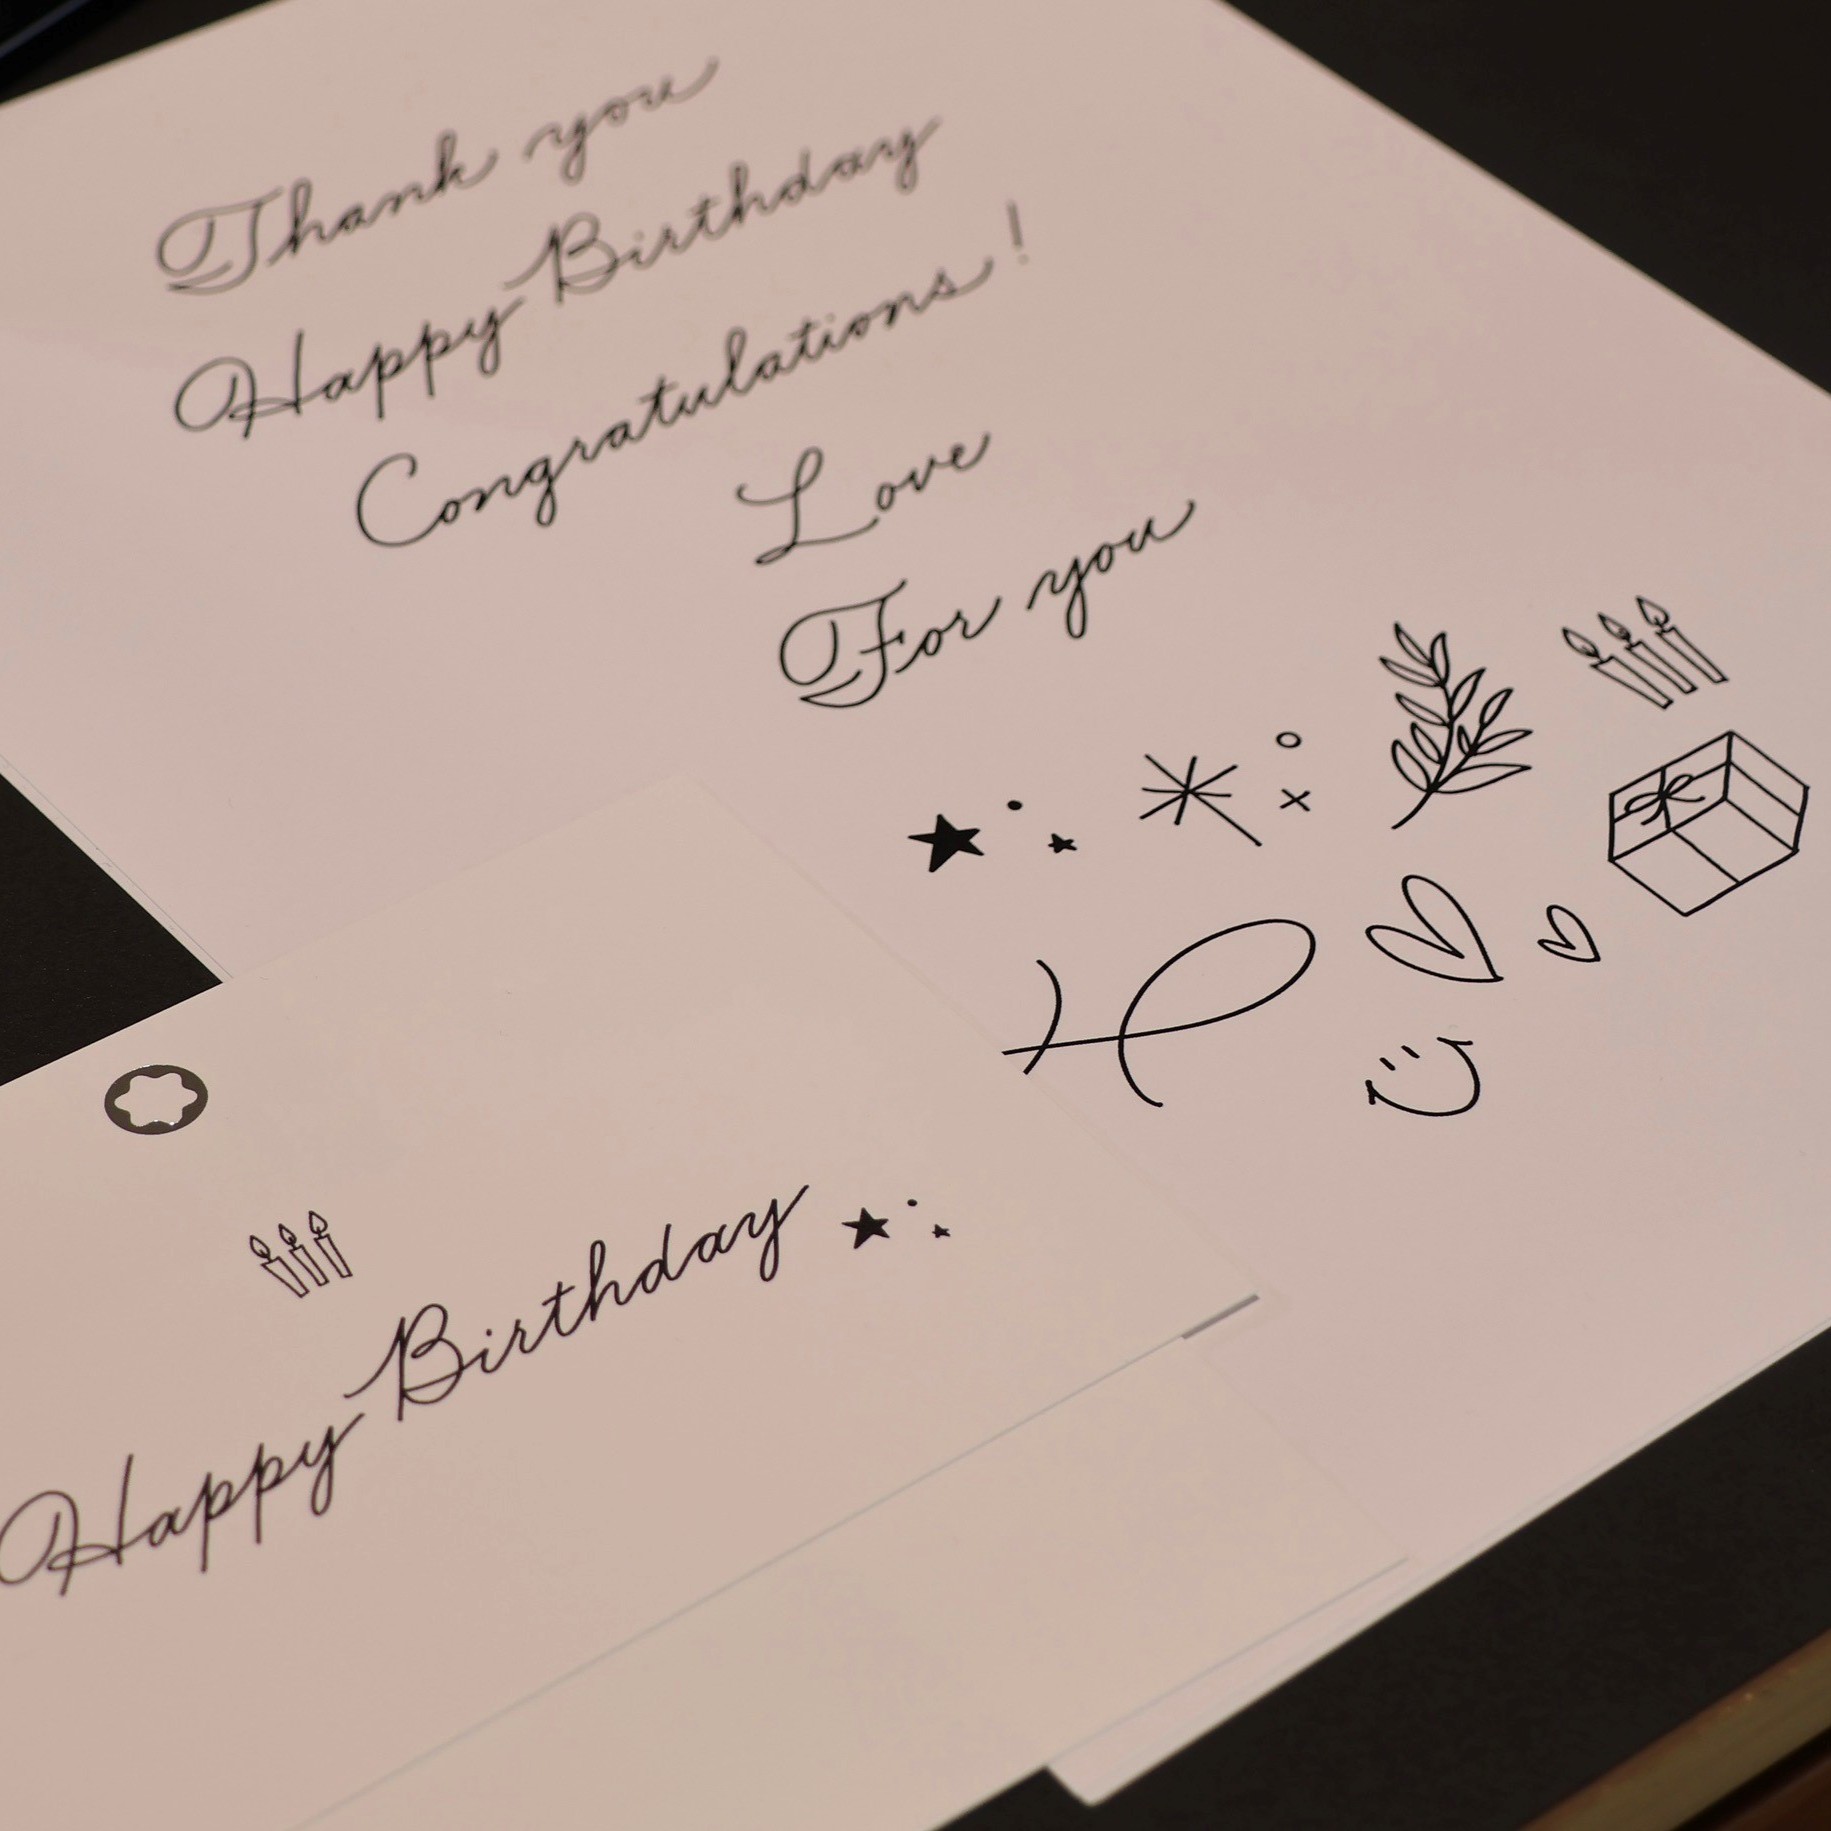 Thank you
Happy Birthday
Congratulations!
Love
For you
Happy Birthday